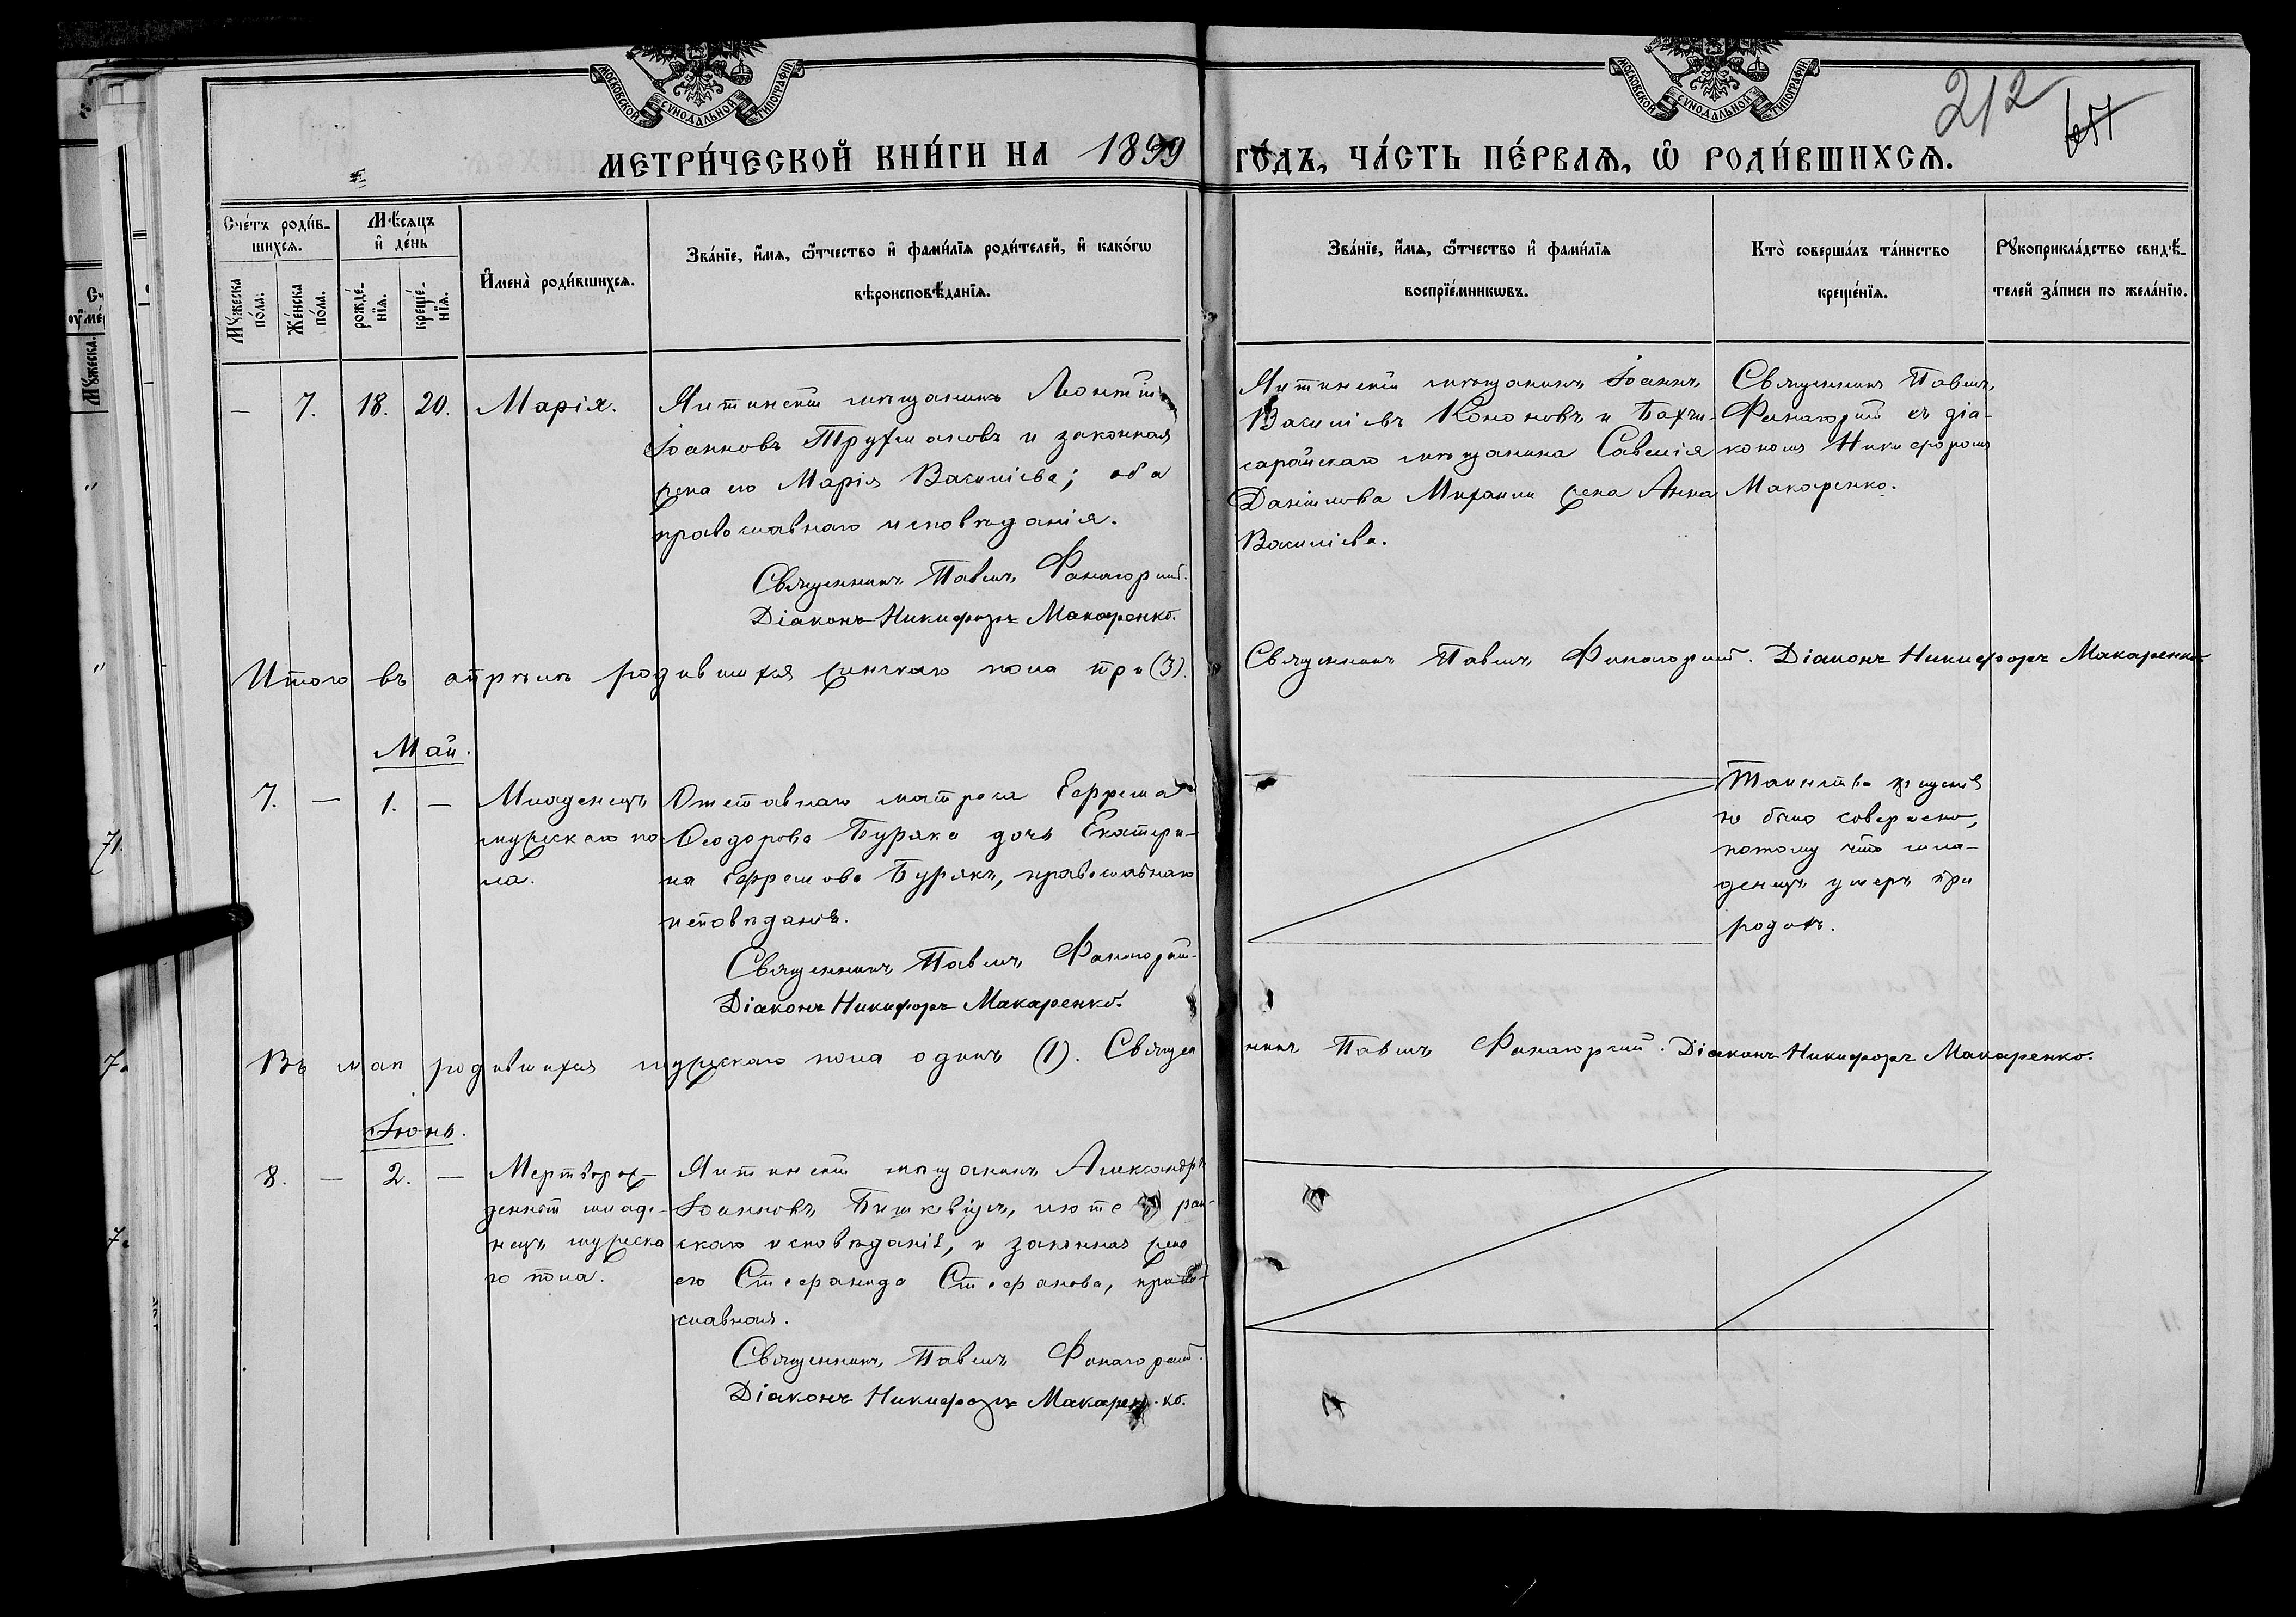 МОСКОВСКОЙ СѴНОДАЛЬНОЙ ТИПОГРАФІИ
МОСКОВСКОЙ СѴНОДАЛЬНОЙ ТИПОГРАФІИ
212
МЕТРИ́ЧЕСКОЙ КНИ́ГИ НА 1899 ГО́ДЪ, ЧА́СТЬ ПЕ́РВАѦ, Ѡ҆ РОДИ́ВШИХСѦ.
Сче́тъ роди́в-
шихсѧ.
Мꙋ́жеска
по́ла.
Же́нска
по́ла.
Мѣ́сѧцъ
и҆ де́нь
рожде́-
нїѧ.
креще́-
нїѧ.
И҆мена̀ роди́вшихсѧ.
Зва́нїе, и҆́мѧ, ѻ҆́тчество и҆ фами́лїѧ роди́телей, и҆ како́гѡ
вѣроисповѣ́данїѧ.
Зва́нїе, и҆́мѧ, ѻ҆́тчество и҆ фами́лїѧ
воспрїе́мникѡвъ.
Кто̀ соверша́лъ та́инство
креще́нїѧ.
Рꙋкоприкла́дство свидѣ́-
телей за́писи по жела́нїю.
— 7. 18. 20. Марія.
Ялтинскій мѣщанинъ Леонтій
Іоанновъ Трухмановъ и законная
жена его Марія Василіева; оба
православнаго исповѣданія.
Священникъ Павелъ Фанагорскій.
Діаконъ Никифоръ Макаренко.
Ялтинскій мѣщанинъ Іоаннъ
Василіевъ Кононовъ и Бахчи-
сарайскаго мѣщанина Савелія
Даніилова Михаили жена Анна
Василіева.
Священникъ Павелъ
Фанагорскій съ діа-
кономъ Никифоромъ
Макаренко.
Итого въ апрѣлѣ родившихся женскаго пола три (3). Священникъ Павелъ Фанагорскій. Діаконъ Никифоръ Макаренко
Май.
7. — 1. —
Младенецъ
мужскаго по-
ла.
Отставнаго матроса Ефрема
Ѳеодорова Буряка дочь Екатери-
на Ефремова Бурякъ, православнаго
исповѣданія.
Священникъ Павелъ Фанагорскій.
Діаконъ Никифоръ Макаренко.
Таинство крещенія
не было совершено,
потому что мла-
денецъ умеръ при
родахъ.
Въ маѣ родившихся мужскаго пола одинъ (1). Священ
никъ Павелъ Фанагорскій. Діаконъ Никифоръ Макаренко.
Іюнь.
8. — 2. —
Мертворож-
денный младе-
нецъ мужска
го пола.
Ялтинскій мѣщанинъ Александръ
Іоанновъ Бишкевичъ, люте ран-
скаго исповѣданія, и законная жена
его Стефанида Стефанова, право-
славная.
Священникъ Павелъ Фанагорскій.
Діаконъ Никифоръ Макарен.ко.